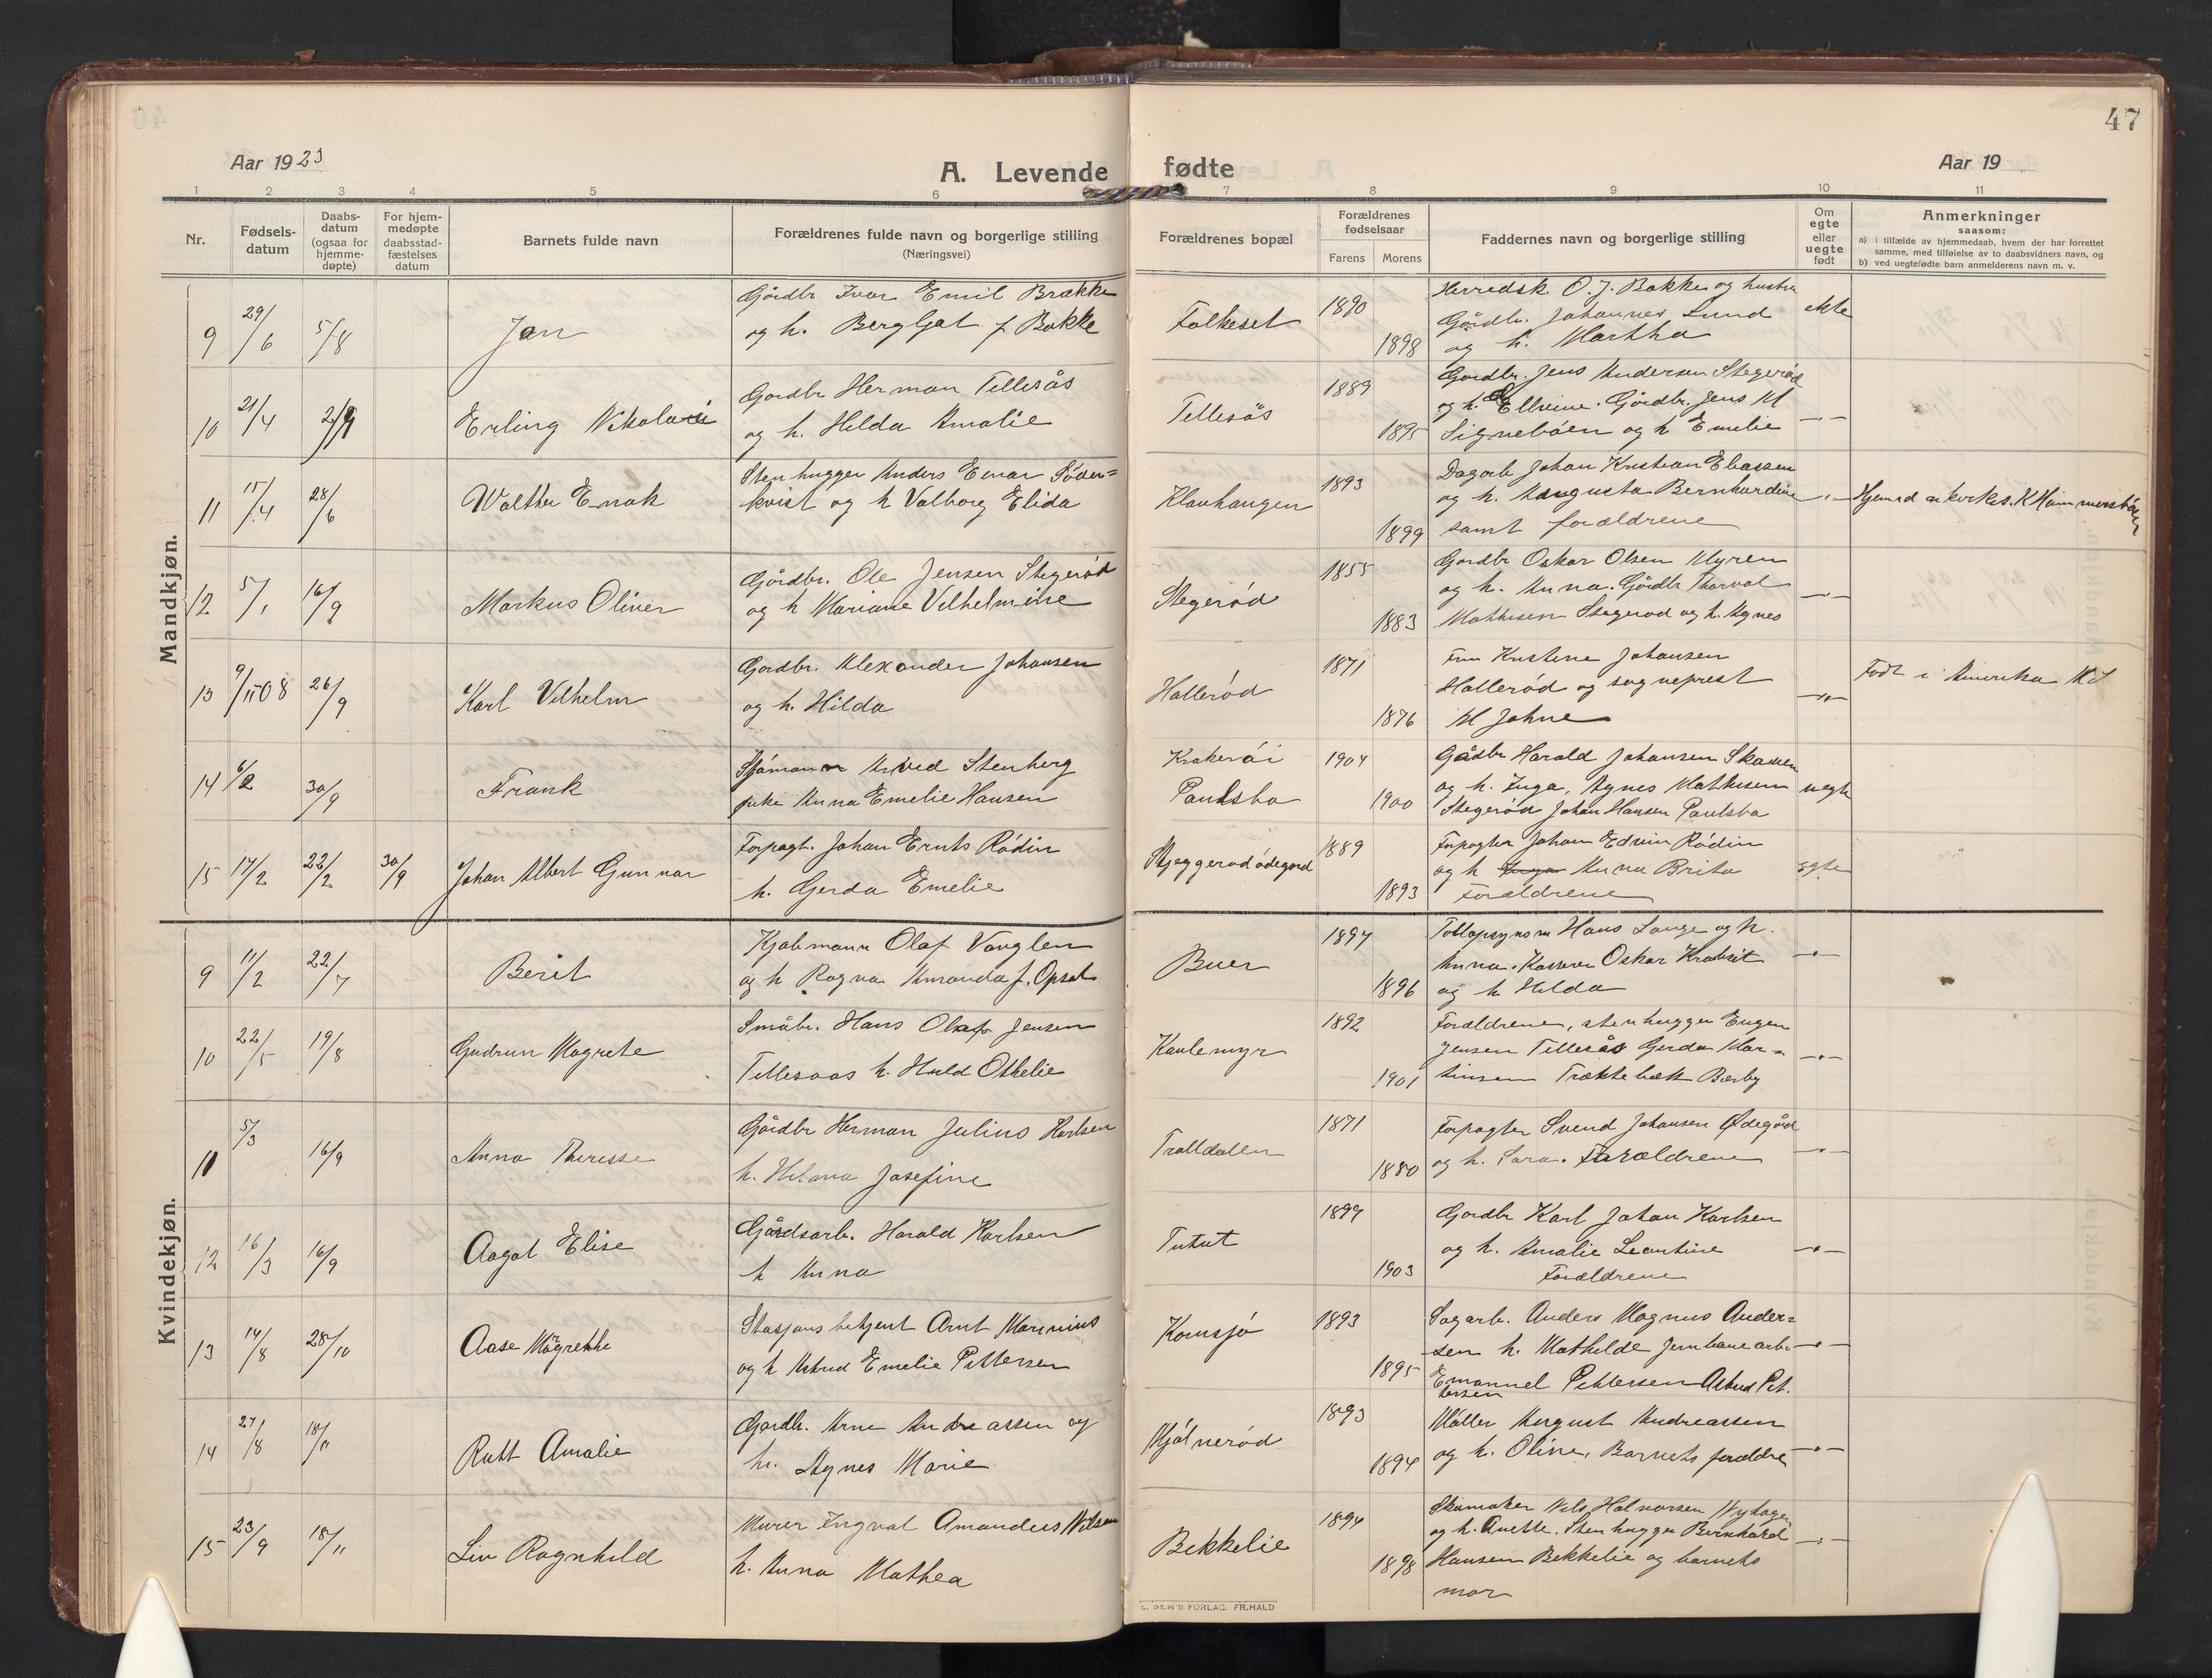 47
Aar 1923
A. Levende fødte
Aar 19
1 2 3 4 5 6 7 8 9 10 11
Nr.
Fødsels-
datum
Daabs-
datum
(ogsaa for
hjemme-
døpte)
For hjem-
medøpte
daabsstad-
fæstelses
datum
Barnets fulde navn
Forældrenes fulde navn og borgerlige stilling
(Næringsvei)
Forældrenes bopæl
Forældrenes
fødselsaar
Farens Morens
Faddernes navn og borgerlige stilling
Om
egte
eller
uegte
født
Anmerkninger
saasom:
a) i tilfælde av hjemmedaab, hvem der har forrettet
samme, med tilføielse av to daabsvidners navn, og
b) ved uegtefødte barn anmelderens navn m. v.
Mandkjøn.
9 29/6 5/8 Jan
Gårdbr Ivar Emil Brække
og h. Bergljot f Bakke
Folkeset 1890 1898
Herredsk. O. J. Bakke og hustru
Gårdbr. Johannes Lund
og h. Martha
ekte
10 21/4 2/9 Erling Nikolai
Gårdbr Herman Tillesås
og h. Hilda Amalie
Tillesås 1889 1895
Gårdbr. Jens Andersen Stegerød
og h. Ellevine. Gårdbr. Jens M
Signebøen og h Emelie
—"—
11 15/4 28/6 Walther Enok
Stenhugger Anders Einar Söder=
kvist og h Valborg Elida
Klavhaugen 1893 1899
Dagarb Johan Kristian Eliassen
og h. Augusta Bernhardine
samt forældrene
—"—
Hjemd av kirkes. K Hammersbøen
12 5/1 16/9 Markus Oliver
Gårdbr. Ole Jensen Stegerød
og h Mariane Vilhelmine
Stegerød 1855 1883
Gårdbr Oskar Olsen Myren
og h. Anna. Gårdbr Thorval
Mathisen Stegerød og h. Agnes
—"—
13 9/11 08 26/9 Karl Vilhelm
Gårdbr. Alexander Johansen
og h. Hilda
Hallerød 1871 1876
Fru Kristine Johansen
Hallerød og sogneprest
M Johne
—"—
Født i Amerika
14 6/2 30/9 Frank
Sjømann Arvid Stenberg
pike Anna Emelie Hansen
Krakerøi
Paulsbo
1904 1900
Gårdbr Harald Johansen Skauen
og h. Inga, Agnes Mathisen
Stegerød Johan Hansen Paulsbo
uegte
15 17/2 22/2 30/9 Johan Albert Gunnar
Forpagt. Johan Ernts Rödin
h. Gerda Emelie
Skjeggerødødegård 1889 1893
Forpagter Johan Edvin Rödin
og h Inga Anna Brita
Forældrene
egte
Kvindekjøn.
9 11/2 22/7 Berit
Kjøbmann Olaf Vanglen
og h Ragna Amanda f. Opsal
Buer 1897 1896
Tollopsynsm Hans Lange og h.
Anna. Kasserer Oskar Krabsit
og h Hilda
—"—
10 22/5 19/8 Gudrun Magrete
Småbr. Hans Olaf Jensen
Tillesaas h. Huld Othelie
Kaslemyr 1892 1901
Forældrene, stenhugger Eugen
Jensen Tillesås Gerda Mar=
tinsen Trættebæk Berby
—"—
11 5/3 16/9 Anna Theresse
Gårdbr Herman Julius Karlsen
h. Hilma Josefine
Trolldalen 1871 1880
Forpagter Svend Johansen Ødegård
og h. Sara. Forældrene
—"—
12 16/3 16/9 Aagot Elise
Gårdsarb. Harald Karlsen
h Anna
Tutut 1899 1903
Gårdbr Karl Johan Karlsen
og h. Amalie Leontine
Forældrene
—"—
13 14/8 28/10 Aase Magrethe
Stasjons betjent Arnt Marinius
og h Astrid Emelie Pettersen
Kornsjø 1893 1895
Sagarb. Anders Magnus Ander=
sen h. Mathilde Jernbanearb
Emanuel Pettersen Astrid Pet.
tersen
—"—
14 27/8 18/11 Rutt Amalie
Gårdbr. Arne Andreassen og
h. Agnes Marie
Mjølnerød 1893 1894
Møller August Andreassen
og h. Oline, Barnets foreldre
—"—
15 23/9 18/11 Liv Ragnhild
Murer Ingval Amandus Nilsen
h. Anna Mathea
Bekkelie 1894 1898
Skomaker Nils Halvorsen Nyhagen
og h. Anette. Stenhugger Bernhard
Hansen Bekkelie og barnets
mor
—"—
E. SEM'S FORLAG. FR.HALD